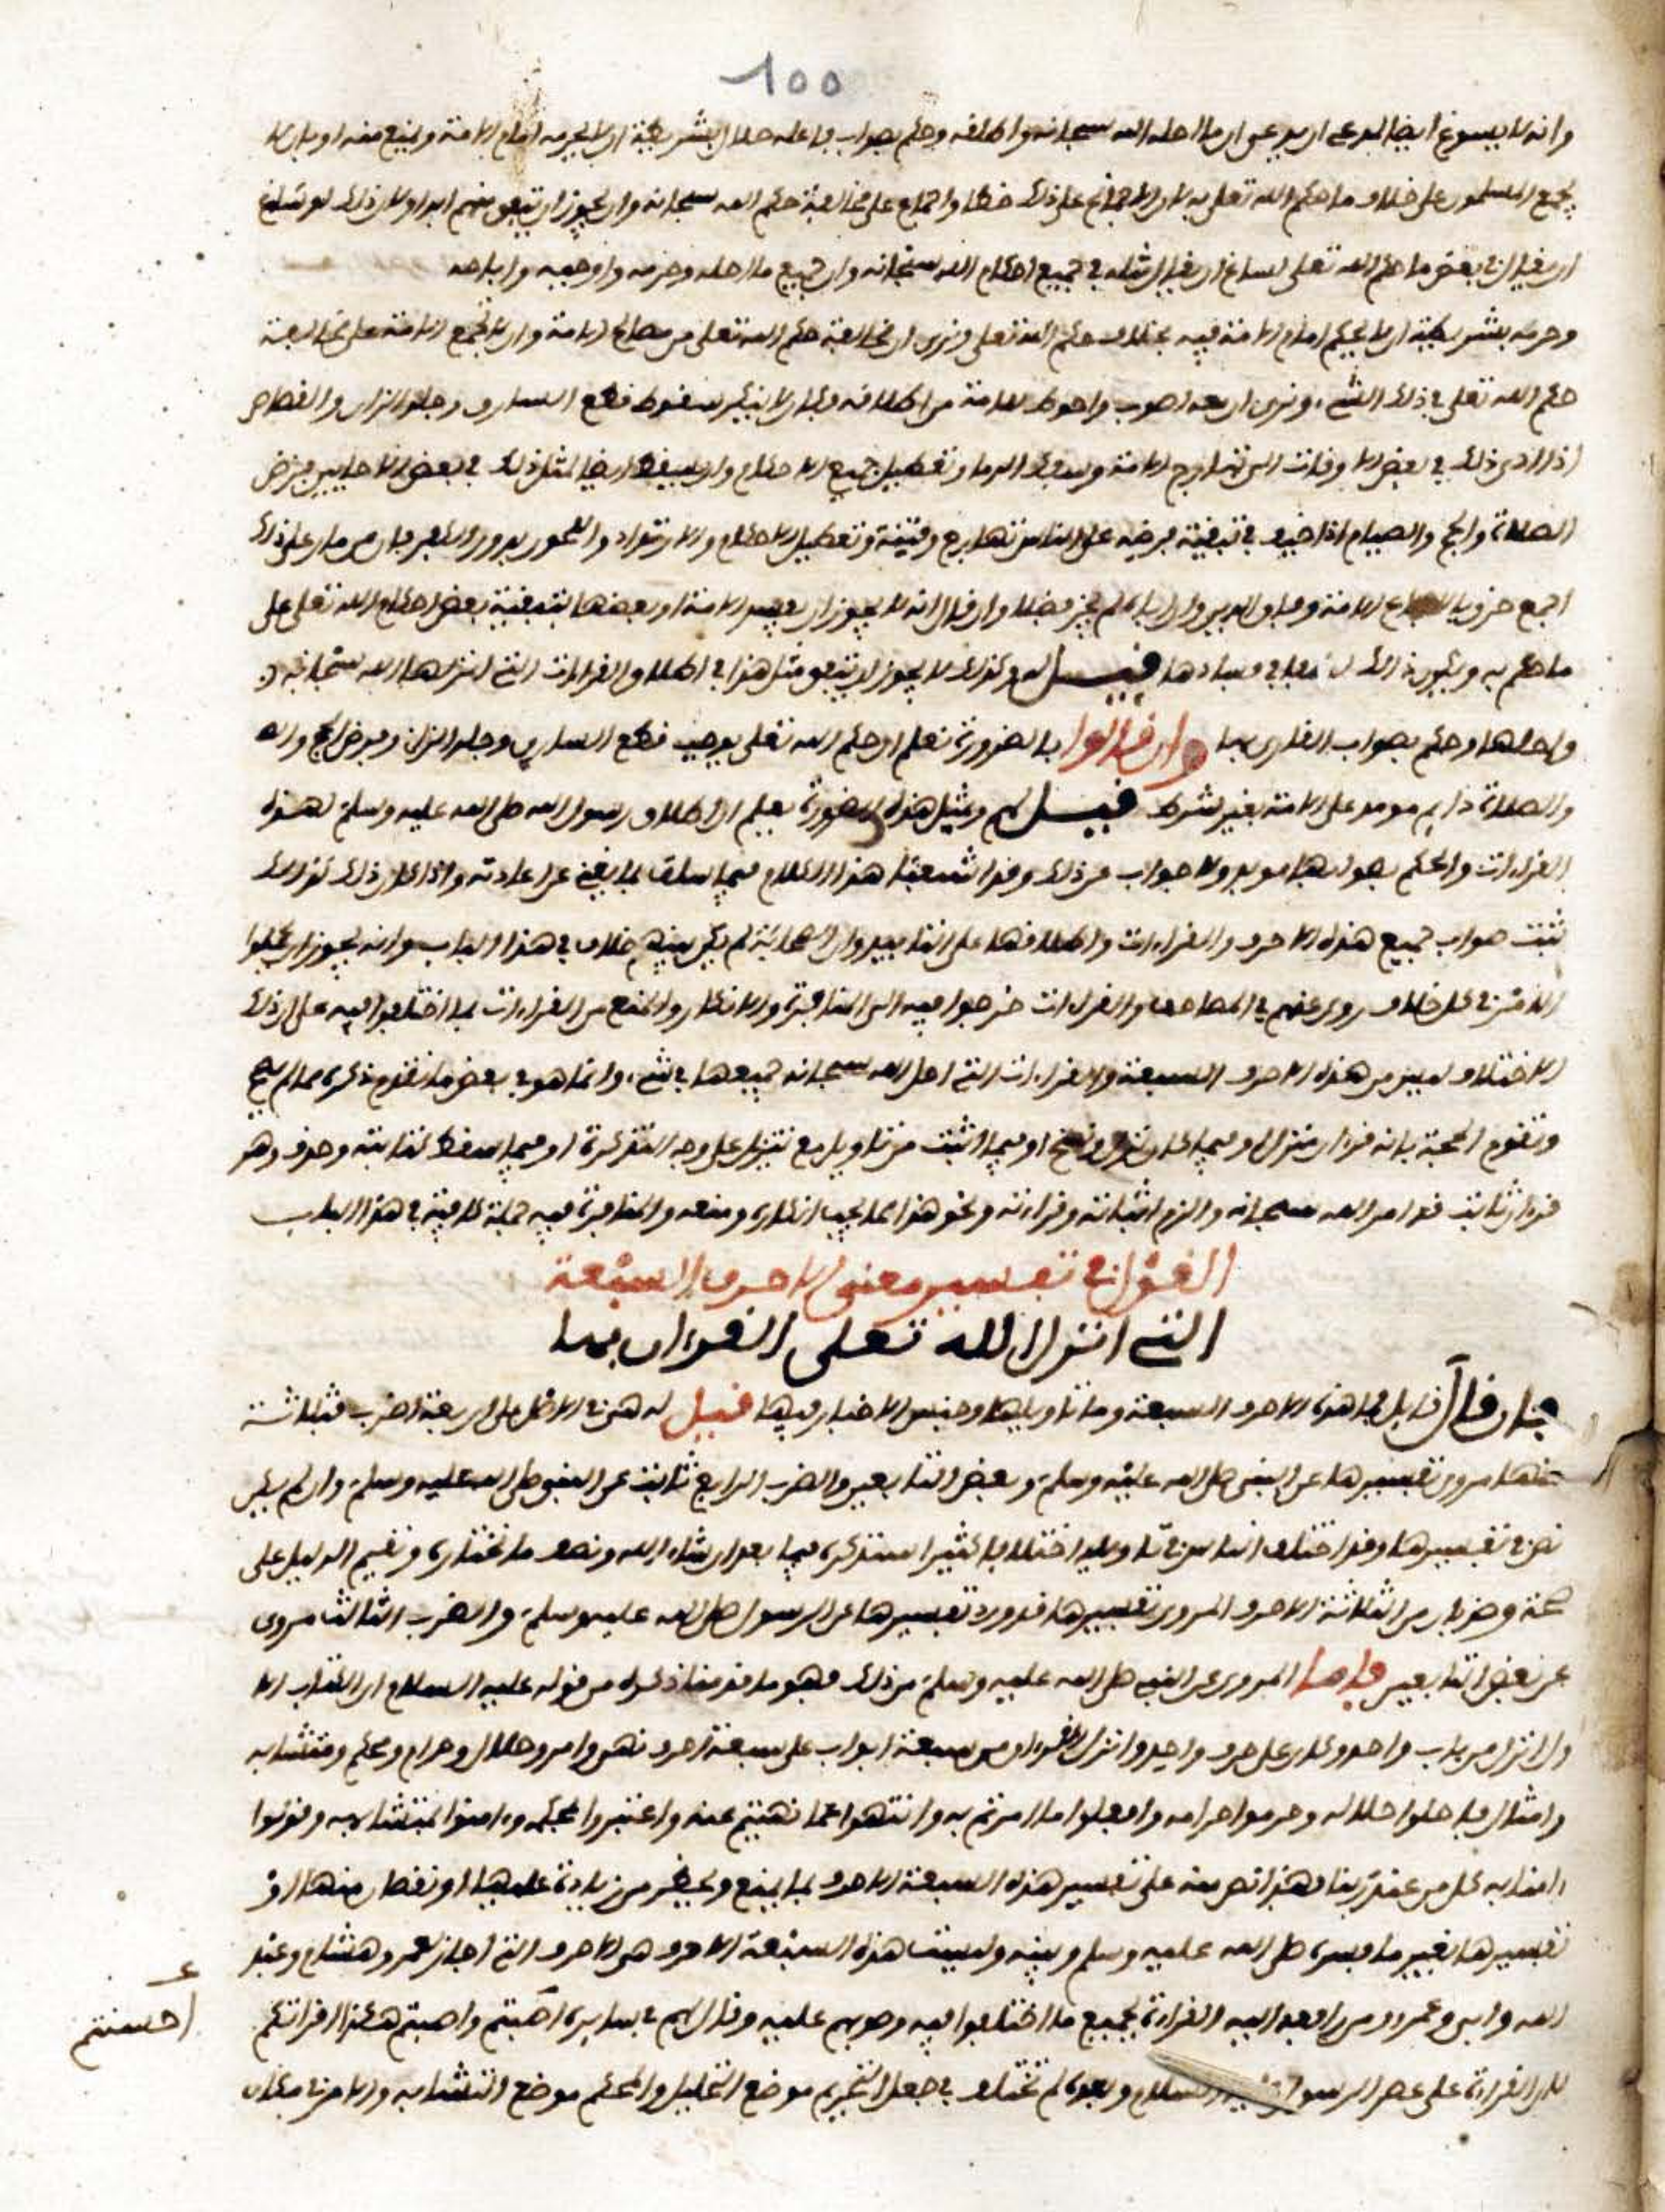 100
وانه لا يسوغ ايضا لمدع ان يدعي ان ما احله الله سبحانه واطلقه وحكم بصواب فاعله حلال بشريطة ان لا يحرمه امام الامة ويمنع منه او بان لا
يجمع المسلمون على خلاف ما حكم الله تعلى به لان الاجماع على ذلك خطا واجماع على مخالفة حكم الله سبحانه ولن يجوز ان يتفق منهم ابدا ولان ذلك لو ساغ
ان يقال في بعض ما حكم الله تعلى لساغ ان يقال مثله في جميع احكام الله سبحانه وان جميع ما احله وحرمه واوجبه واباحه
وحرمه بشريطة ان لا يحكم امام الامة فيه بخلاف حكم الله تعلى ويرى ان مخالفة حكم الله تعلى من مصالح الامة وان لا تجمع الامة على مخالفة
حكم الله تعلى في ذلك الشيء ويرى ان منعه اصوب واحوط للامة من اطلاقه ولما لا ينكر سقوط قطع السارق وجلد الزان والقصاص
اذا ادى ذلك في بعض الاوقات الى تهارج الامة وسفك الدما وتعطيل جميع الاحكام وان يسقط ايضا لمثل ذلك في بعض الاحايين فرض
الصلاة والحج والصيام اذا خيف في تبقية فرضه على الناس تهارج وفتنة وتعطيل الاحكام والارتداد واللحوق بدور الكفر فان من مر على ذلك
اجمع خرق الاجماع الامة وفارق الدين وان اباه لم يجز فصلا وان قال انه لا يجوز ان يفسد الامة او بعضها بتبقية بعض احكام الله تعلى على
ما حكم به ويكون ذلك لطفا في فسادها قيل له وكذلك لا يجوز ان يتفق مثل هذا في اطلاق القراءات التي انزلها الله سبحانه
واحلها وحكم بصواب القارئ بها وان قالوا بالضرورة نعلم ان حكم الله تعلى يوجب قطع السارق وجلد الزان وفرض الحج
والصلاة دايم موبد على الامة بغير شرط قيل لهم وبمثل هذه الضرورة يعلم ان اطلاق رسول الله صلى الله عليه وسلم لهذه
القراءات والحكم بصوابها موبد ولا جواب عن ذلك وقد اشبعنا هذا الكلام فيما سلف بما يغني عن اعادته واذا كان ذلك كذلك
ثبت صواب جميع هذه الاحرف والقراءات واطلاقها على التابيد وان الصحابة لم يكن بينهم خلاف في هذا الباب وانه يجوز ان يحملوا
الامر في كل خلاف روي عنهم في المصاحف والقراءات خرجوا فيه الى المنافرة والانكار والمنع من القراءات بما اختلفوا فيه على ان ذلك
الاختلاف ليس من هذه الاحرف السبعة والقراءات التي احل الله سبحانه جميعها في شيء وانما هو في بعض ما تقدم ذكره مما لم يصح
وتقوم الحجة بانه قران منزل او فيما كان نزل ونسخ او فيما اثبت من تاويل مع تنزيل على وجه التذكرة او فيما اسقط كتابته وحذف وهو
قران ثابت قد امر الله سبحانه والزم اثباته وقراءته ونحو هذا مما يجب انكاره ومنعه والمنافرة فيه جملة كافية في هذا الباب
القول في تفسير معنى الاحرف السبعة
التي انزل الله تعلى القرءان بها
فان قال قايل فما هذه الاحرف السبعة وما تاويلها وجنس الاختلاف فيها قيل له هي في الاصل على اربعة اضرب فثلاثة
منها مروي تفسيرها عن النبي صلى الله عليه وسلم وبعض التابعين والضرب الرابع ثابت عن النبي صلى الله عليه وسلم وان لم يكن
نص في تفسيرها وقد اختلف الناس في تاويله اختلافا كثيرا سنذكره فيما بعد ان شاء الله ونصف ما نختاره ونقيم الدليل على
صحته وضربان من الثلاثة الاحرف المروي تفسيرها قد ورد تفسيرها عن الرسول صلى الله عليه وسلم والضرب الثالث مروي
عن بعض التابعين فاما المروي عن النبي صلى الله عليه وسلم من ذلك فهو ما قدمنا ذكره من قوله عليه السلام ان الكتاب الا
ول نزل من باب واحد وكان على حرف واحد وانزل القرءان من سبعة ابواب على سبعة احرف نهي وامر وحلال وحرام ومحكم ومتشابه
وامثال فاحلوا حلاله وحرموا حرامه وافعلوا ما امرتم به وانتهوا عما نهيتم عنه واعتبروا بمحكمه وءامنوا بمتشابهه وقولوا
ءامنا به كل من عند ربنا فهذا نص منه على تفسير هذه السبعة الاحرف بما يمنع ويحظر من زيادة عليها او نقصان منها او
تفسيرها بغير ما فسره صلى الله عليه وسلم وبينه وليست هذه السبعة الاحرف هي الاحرف التي اجاز لعمر وهشام وعبد
الله وابي وعمرو ومن رافعه اليه القراءة بجميع ما اختلفوا فيه وصوبهم عليه وقال لهم في سايره احسنتم واصبتم هكذا اقراتكم
لان القراءة على عصر الرسول عليه السلام وبعده لم تختلف في جعل التحريم موضع التحليل والمحكم موضع المتشابه والامر في مكان
احسنتم